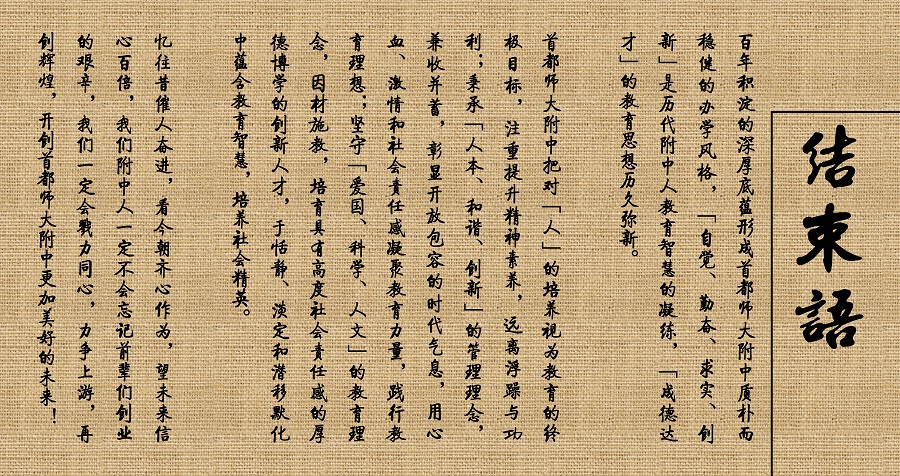 结束語
百年积淀的深厚底蕴形成首都师大附中质朴而
稳健的办学风格，「自觉、勤奋、求实、创
新」是历代附中人教育智慧的凝练，「成德达
才」的教育思想历久弥新。
首都师大附中把对「人」的培养视为教育的终
极目标，注重提升精神素养，远离浮躁与功
利；秉承「人本、和谐、创新」的管理理念，
兼收并蓄，彰显开放包容的时代气息，用心
血、激情和社会责任感凝聚教育力量，践行教
育理想；坚守「爱国、科学、人文」的教育理
念，因材施教，培育具有高度社会责任感的厚
德博学的创新人才，于恬静、淡定和潜移默化
中蕴含教育智慧，培养社会精英。
忆往昔催人奋进，看今朝齐心作为，望未来信
心百倍，我们附中人一定不会忘记前辈们创业
的艰辛，我们一定会戮力同心，力争上游，再
创辉煌，开创首都师大附中更加美好的未来！